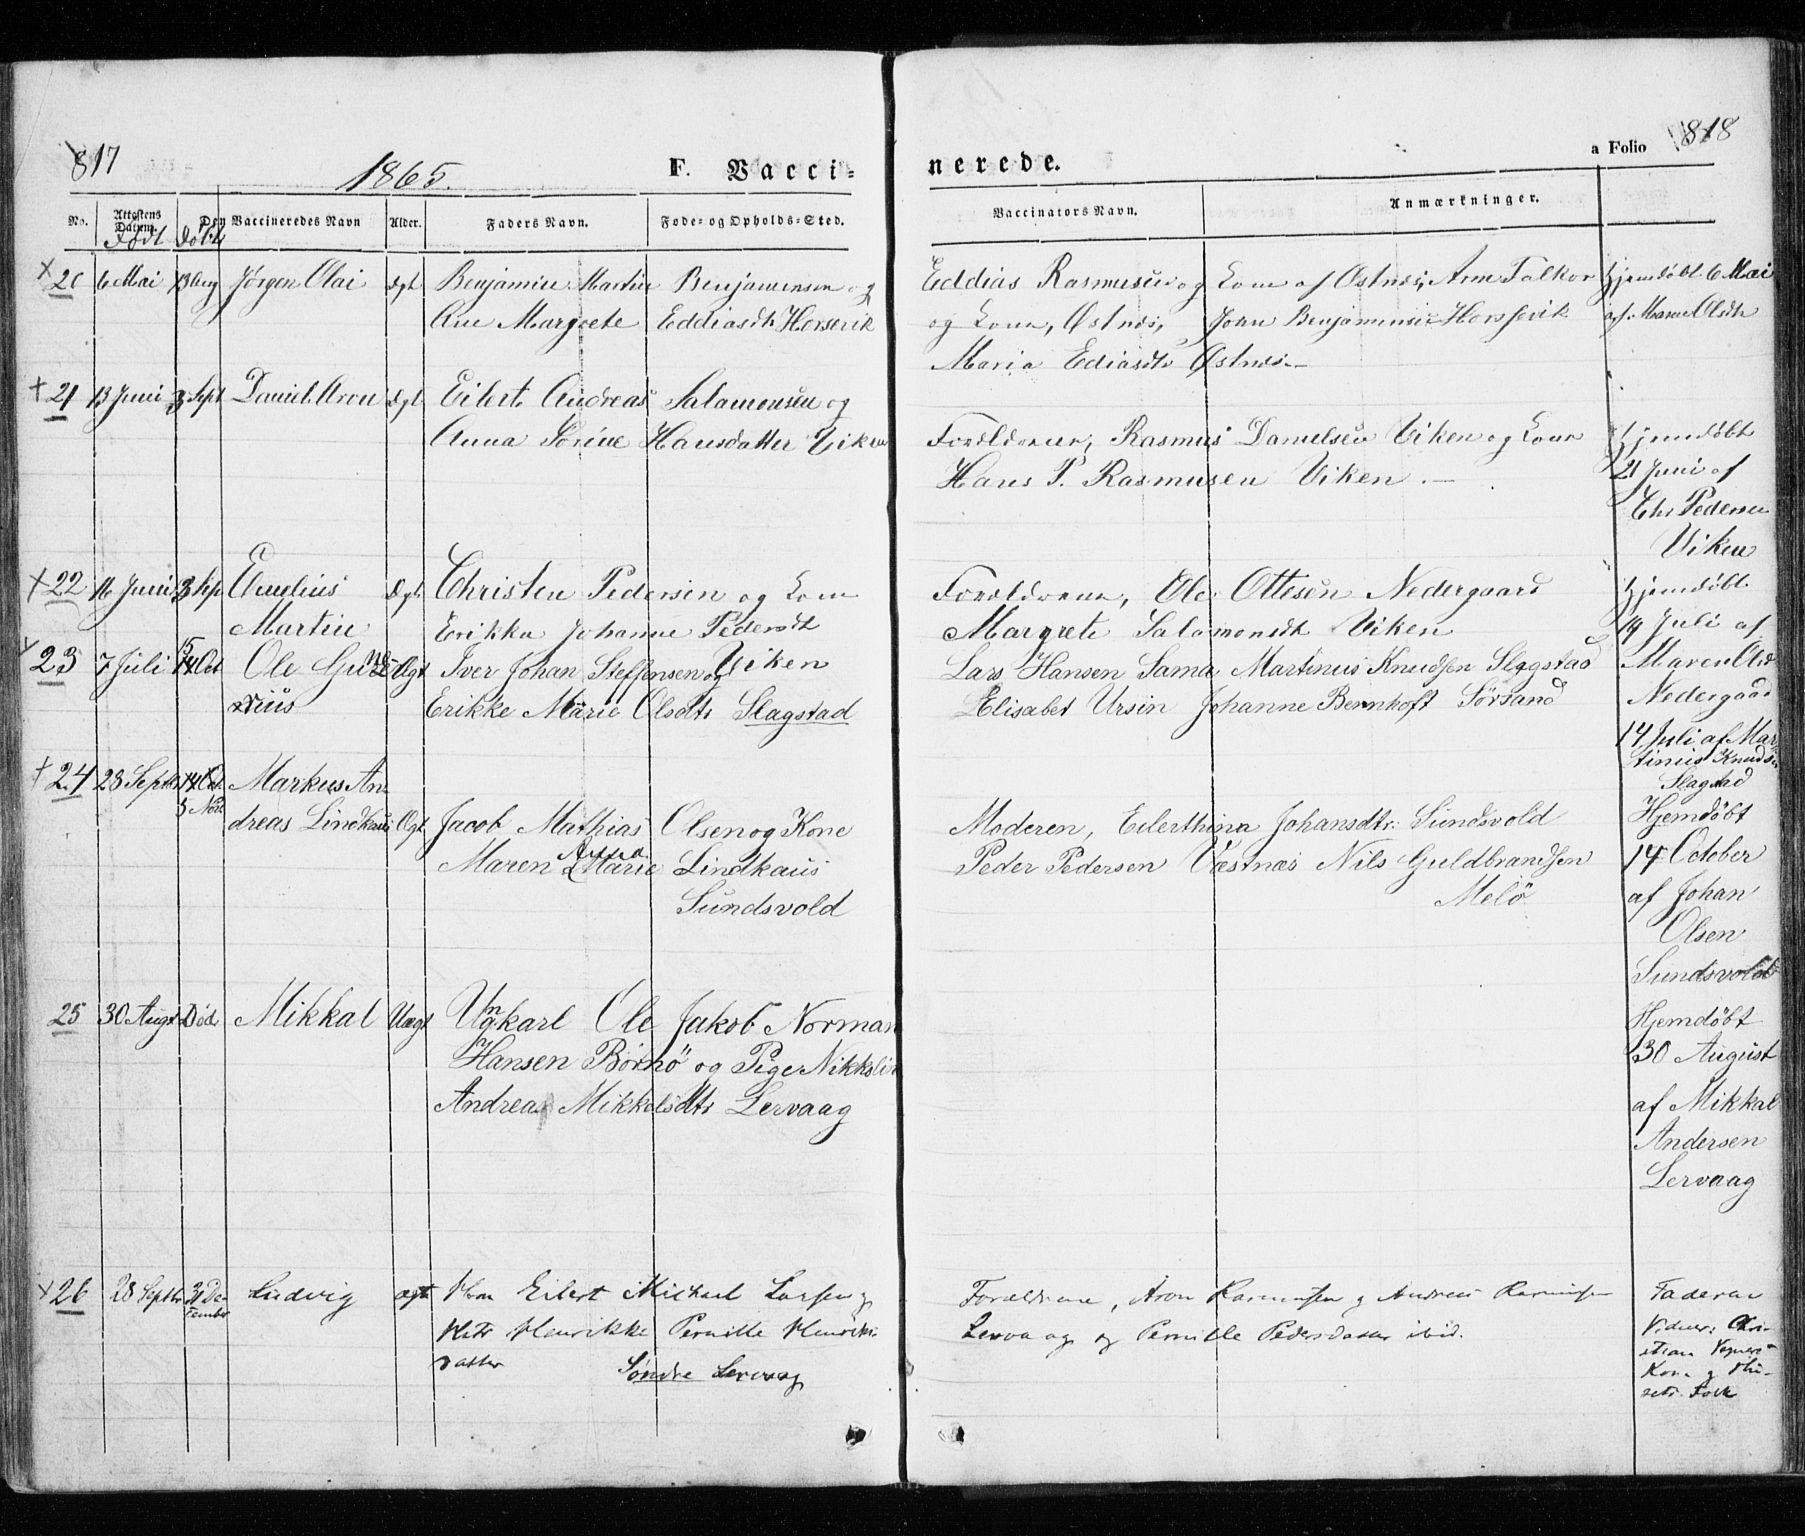 817
1865.
F. Vacci=
nerede.
a Folio 818
No. Attestens Datum. Den Vaccineredes Navn Alder. Faders Navn. Føde- og Opholds-Sted.
Født Døbt
Vaccinators Navn. Anmærkninger.
20 6 Mai 13 Aug Jørgen Olai Ægt Benjamin Martin Benjaminsen og
Ane Margrete Eddiasdtr Horsevik
Eddias Rasmusen og Kone af Østnes, Arne Falkor
og Kone, Østnes, John Benjaminsen Horsevik
Maria Ediasdtr Østnes
Hjemdøbt 6 Mai
af Maren Olsdtr
21 13 Juni 3 Sept Daniel Aron Ægt Eilert Andreas Salamonsen og
Anna Sorine Hansdatter Viken
Forældrene, Rasmus Danielsen Viken og Kone
Hans P. Rasmusen Viken.
Hjemdøbt
21 Juni af
Chr Pedersen
Viken
22 16 Juni 3 Sep Emelius Ægt Christen Pedersen og Kone
Martin Erikka Johanne Pedersdtr
Viken
Forældrene, Ole Ottesen Nedergaard
Margrete Salamonsdt Viken
Hjemdøbt
19 Juli af
Maren Olsd
Nedergaard
23 7 Juli 15 Oct Ole Gund Ægt Iver Johan Steffensen og
Erikke Marie Olsdtr Slagstad
Lars Hansen Sama Martinus Knudsen Slagstad
Elisabet Ursin Johanne Bernhoft Sörsand
14 Juli af Mar
tinus Knudsen
Slagstad
24 28 Septr 14 Oct Markus An
5 Nov dreas Lindkaus Ægt Jacob Mathias Olsen og Kone
Maren Marie Lindkaus
Sundsvold
Moderen, Eilerthina Johansdtr Sundsvold
Peder Pedersen Væstnæs Nils Guldbrandsen
Melö
Hjemdøbt
14 October
af Johan
Olsen
Sundsvold
25 30 Augt Död Mikkal Uægt Ungkarl Ole Jakob Norman
Hansen Börnö og Pige
Andreas Mikkelsdtr Lervaag
Hjemdøbt
30 August
af Mikkal
Andersen
Lervaag
26 28 Septbr 31 De-
cember Ludvig ægte Hm Eilert Michael Larsen og
Hstr Henrikke Pernille Henriks-
datter Søndre Lervaag
Forældrene, Aron Rasmussen og Andreas Rasmussen
Lervaag og Pernille Pedersdatter ibid.
Faderne
Vidner: Chri-
stian
Kone og Hu-
setr Folk